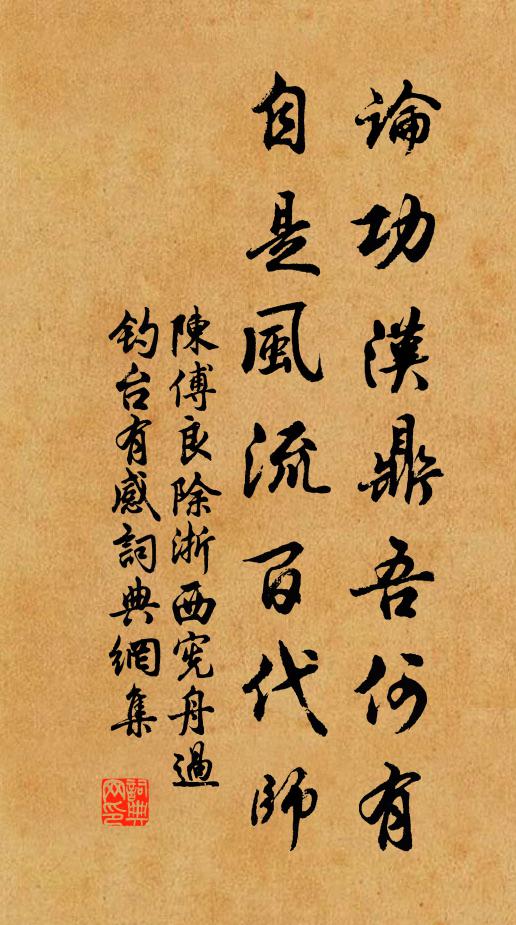 論功漢鼎吾何有
自是風流百代師
陳傅良除浙西憲舟過
釣台有感詞典網集
詞典
网印